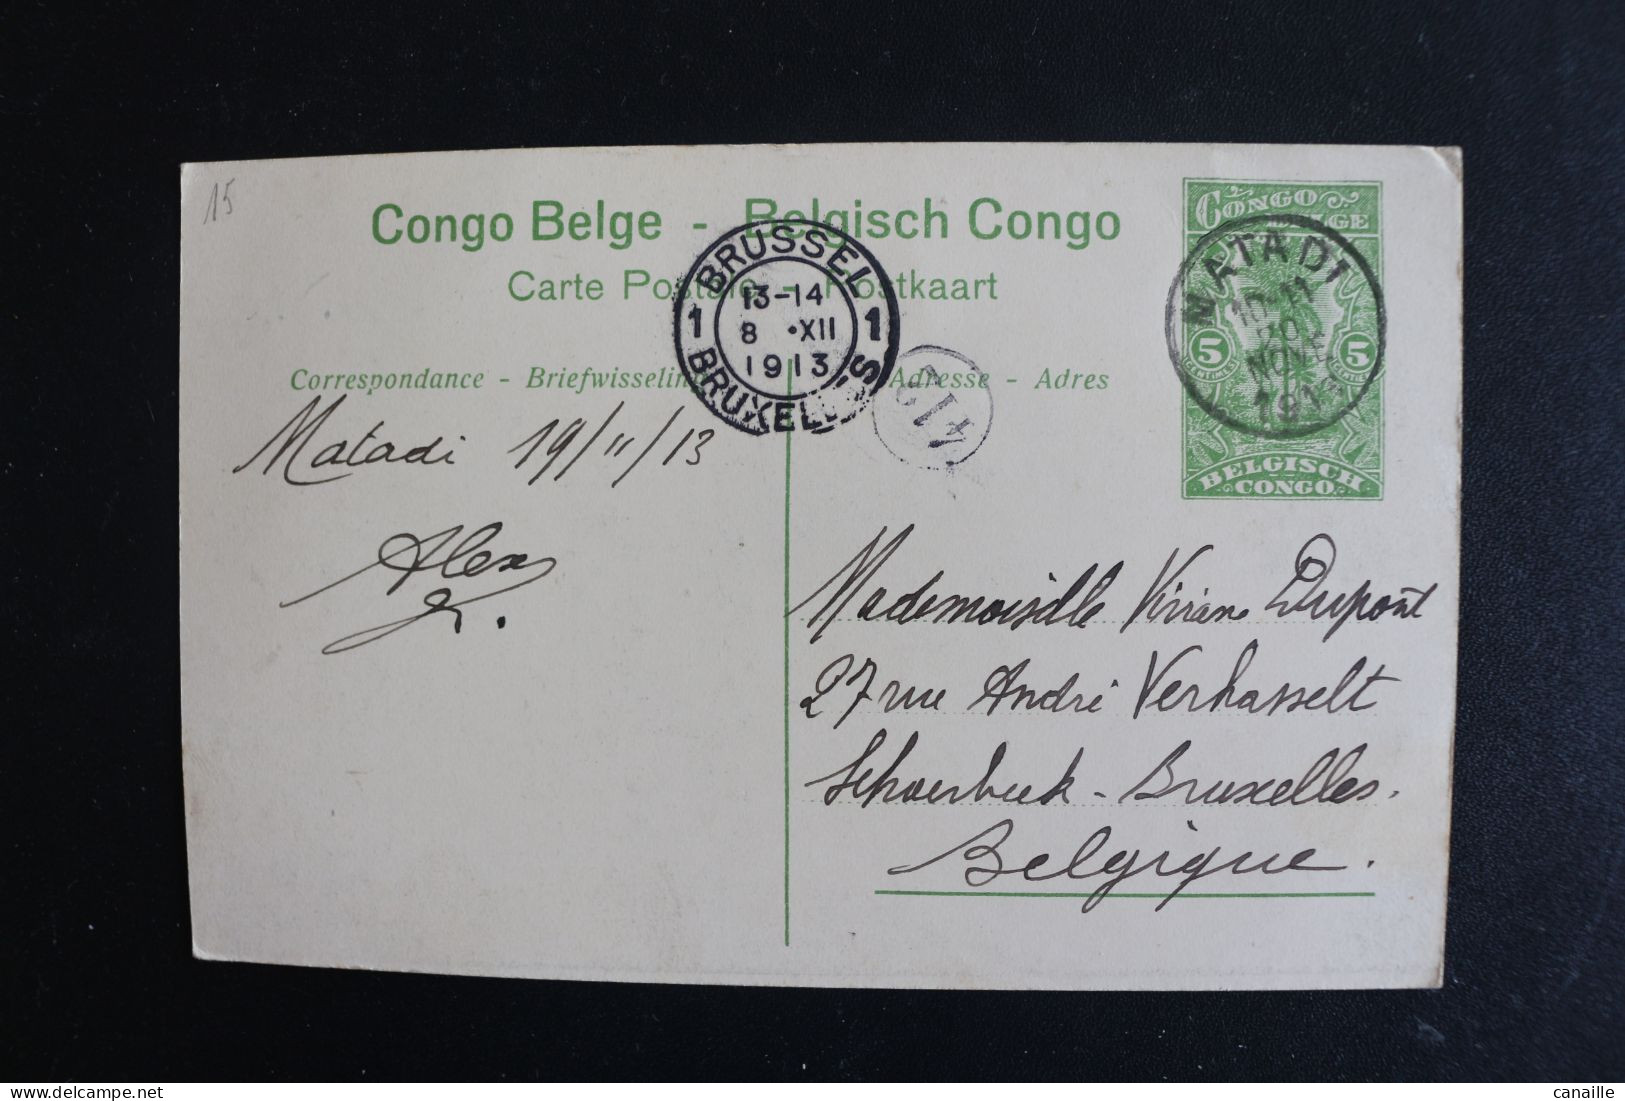 15
Congo Belge - Belgisch Congo
Carte Postale - Postkaart
Correspondance - Briefwisseling
Adresse - Adres
BRUSSEL
13-14
1 8 •XII 1
1913
BRUXELLES
MATADI
10-11
NOVE
1913
CONGO BELGE
5 5
BELGISCH
CONGO
Matadi 19/11/13
Alex
K.
Mademoiselle Viviane Dupont
27 rue André Verhasselt
Schaerbeek - Bruxelles.
Belgique.
canaille